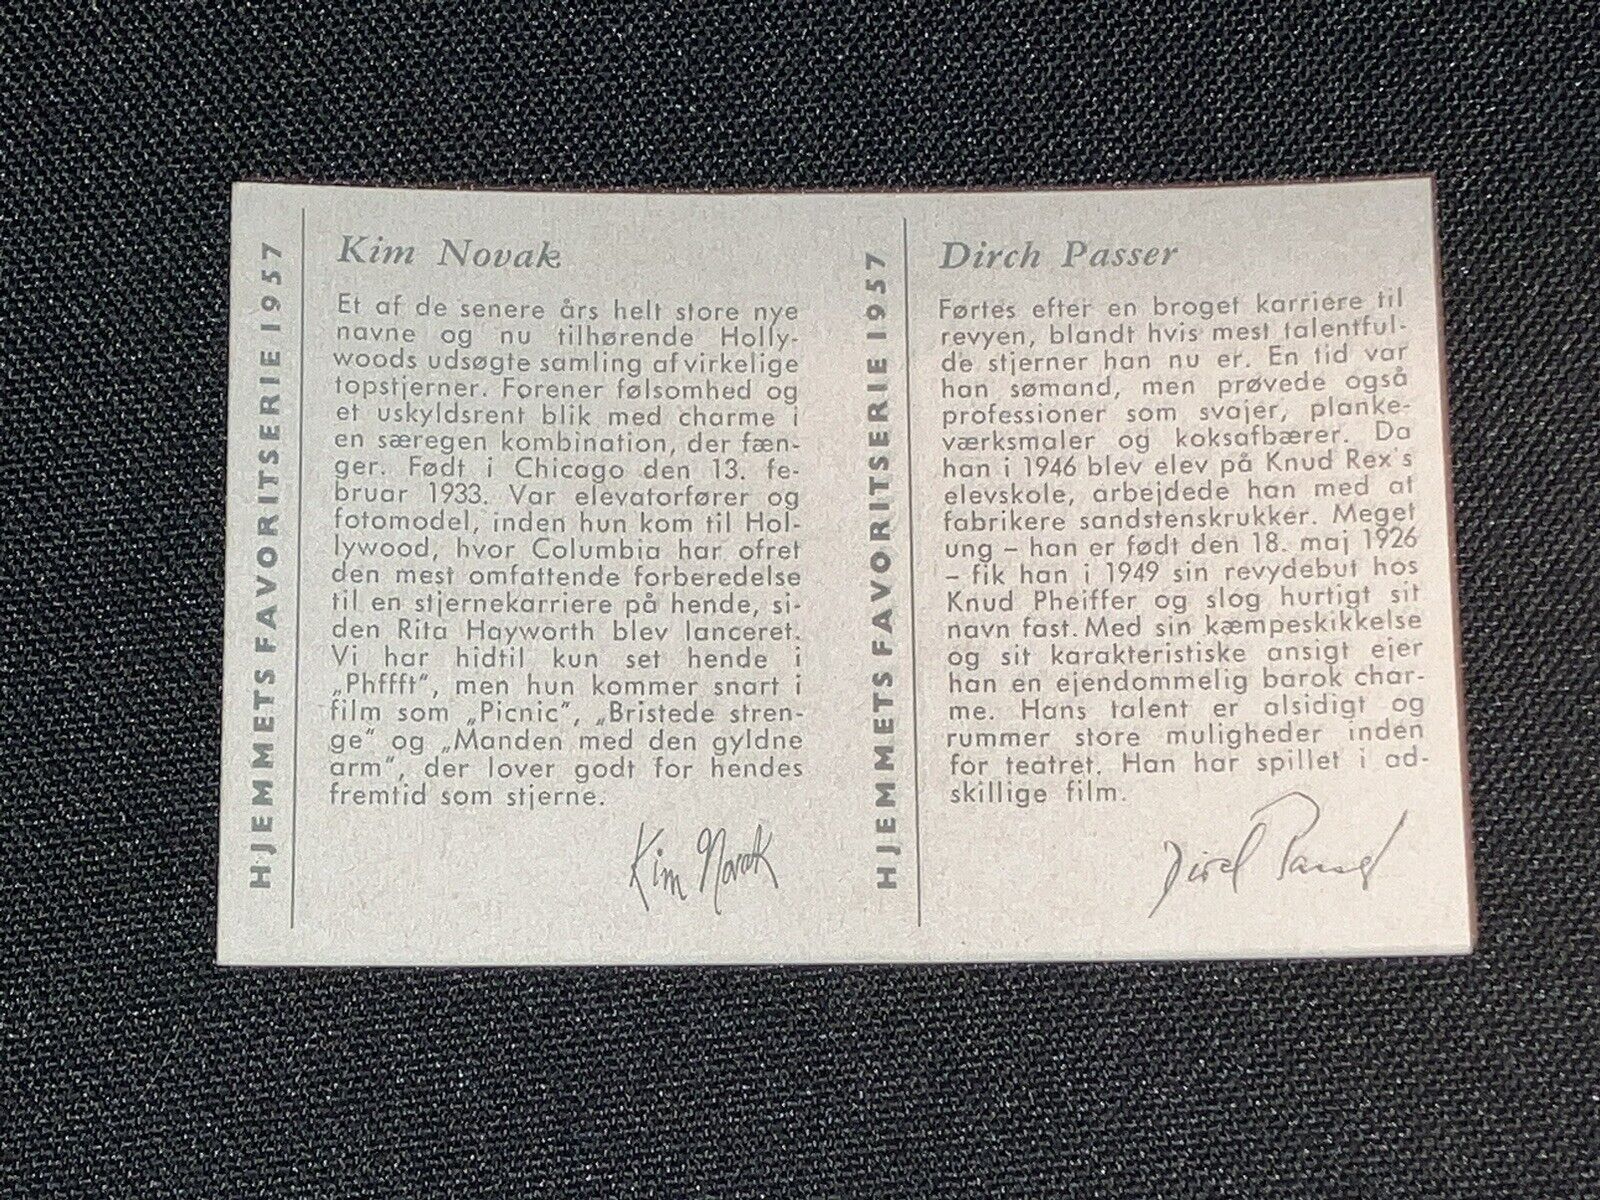 HJEMMETS FAVORITSERIE 1957
Kim Novak
Et af de senere års helt store nye
navne og nu tilhørende Holly-
woods udsøgte samling af virkelige
topstjerner. Forener følsomhed og
et uskyldsrent blik med charme i
en særegen kombination, der fæn-
ger. Født i Chicago den 13. fe-
bruar 1933. Var elevatorfører og
fotomodel, inden hun kom til Hol-
lywood, hvor Columbia har ofret
den mest omfattende forberedelse
til en stjernekarriere på hende, si-
den Rita Hayworth blev lanceret.
Vi har hidtil kun set hende i
„Phffft", men hun kommer snart i
film som „Picnic", „Bristede stren-
ge" og „Manden med den gyldne
arm", der lover godt for hendes
fremtid som stjerne.
Kim Novak
HJEMMETS FAVORITSERIE 1957
Dirch Passer
Førtes efter en broget karriere til
revyen, blandt hvis mest talentful-
de stjerner han nu er. En tid var
han sømand, men prøvede også
professioner som svajer, planke-
værksmaler og koksafbærer. Da
han i 1946 blev elev på Knud Rex's
elevskole, arbejdede han med at
fabrikere sandstenskrukker. Meget
ung – han er født den 18. maj 1926
– fik han i 1949 sin revydebut hos
Knud Pheiffer og slog hurtigt sit
navn fast. Med sin kæmpeskikkelse
og sit karakteristiske ansigt ejer
han en ejendommelig barok char-
me. Hans talent er alsidigt og
rummer store muligheder inden
for teatret. Han har spillet i ad-
skillige film.
Dirch Passer